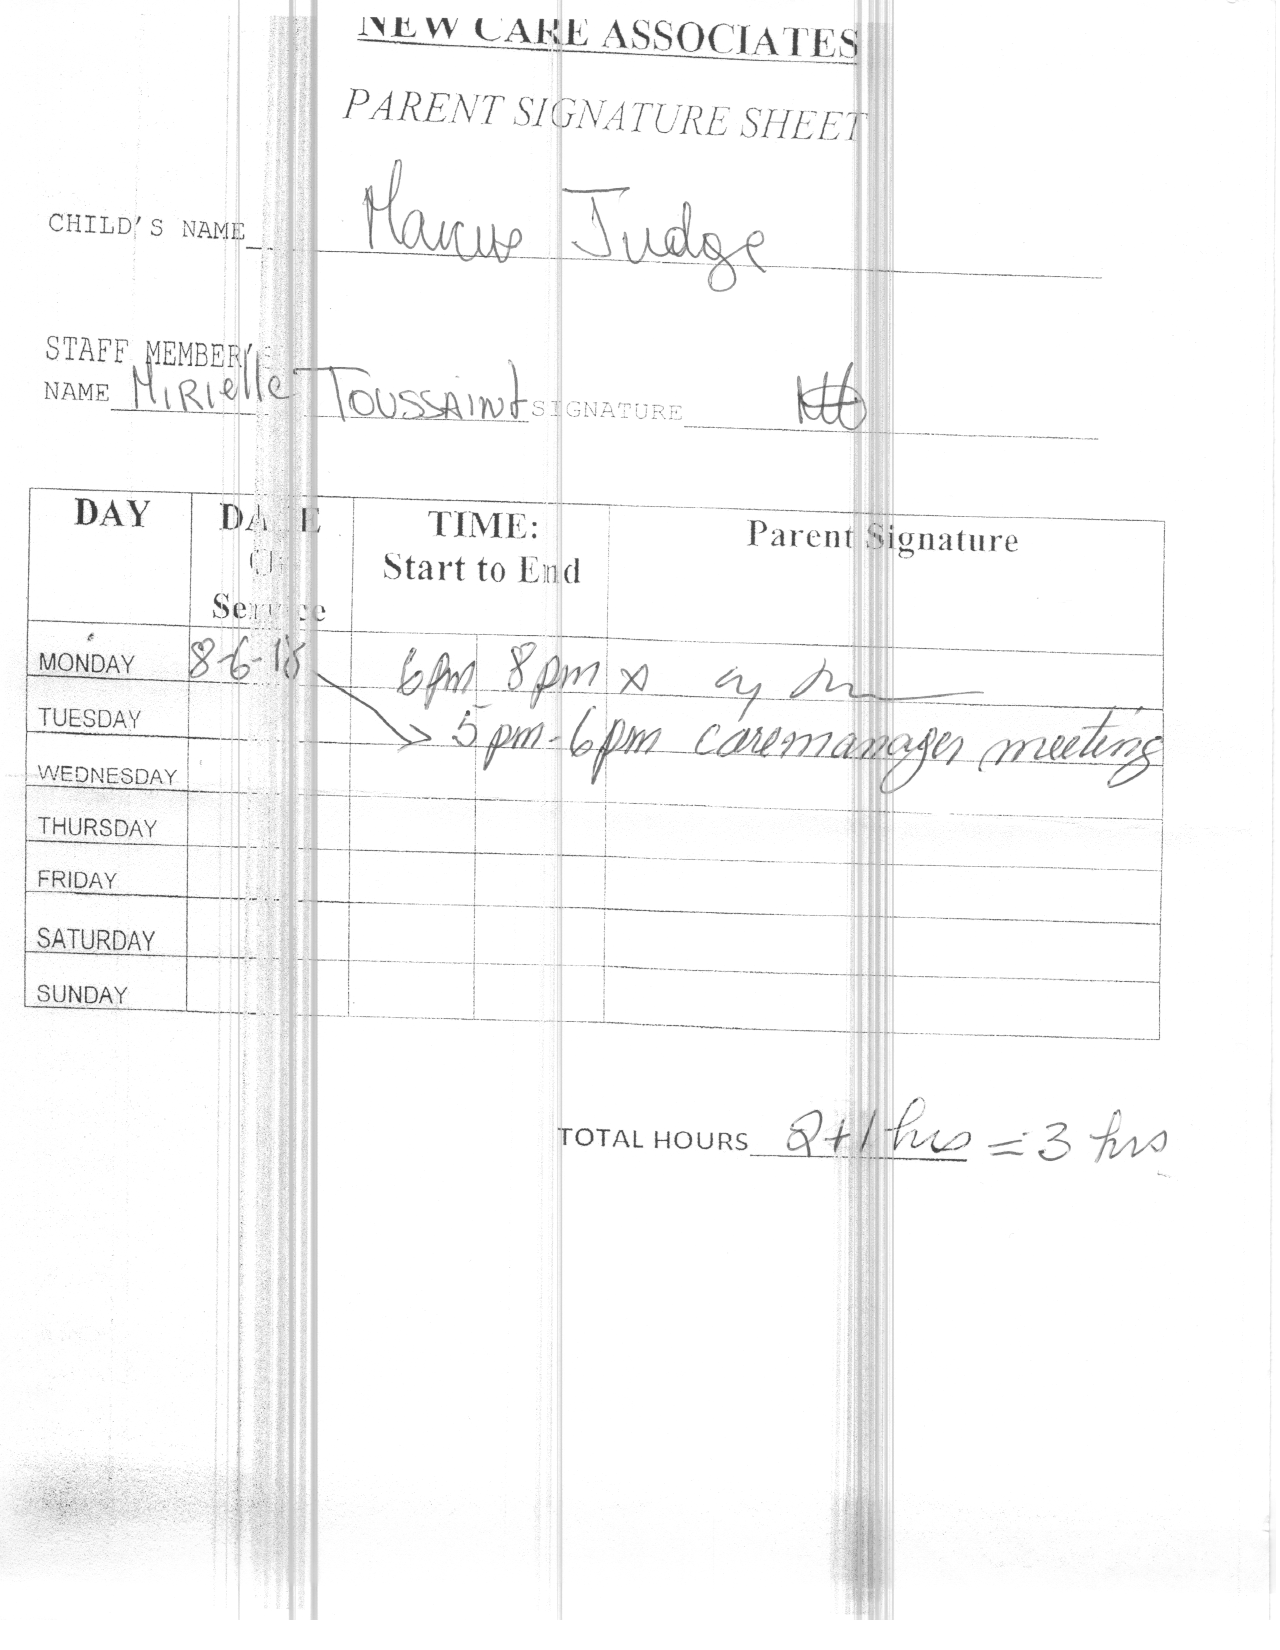 NEW CARE ASSOCIATES
PARENT SIGNATURE SHEET
CHILD'S NAME Marcus Judge
STAFF MEMBER'S
NAME MIRIelle TOUSSAINT SIGNATURE
DAY DATE TIME: Parent Signature
Of Start to End
Service
MONDAY 8-6-18 6pm 8pm x
TUESDAY > 5pm-6pm caremanager meeting
WEDNESDAY
THURSDAY
FRIDAY
SATURDAY
SUNDAY
TOTAL HOURS 2+1 hrs = 3 hrs